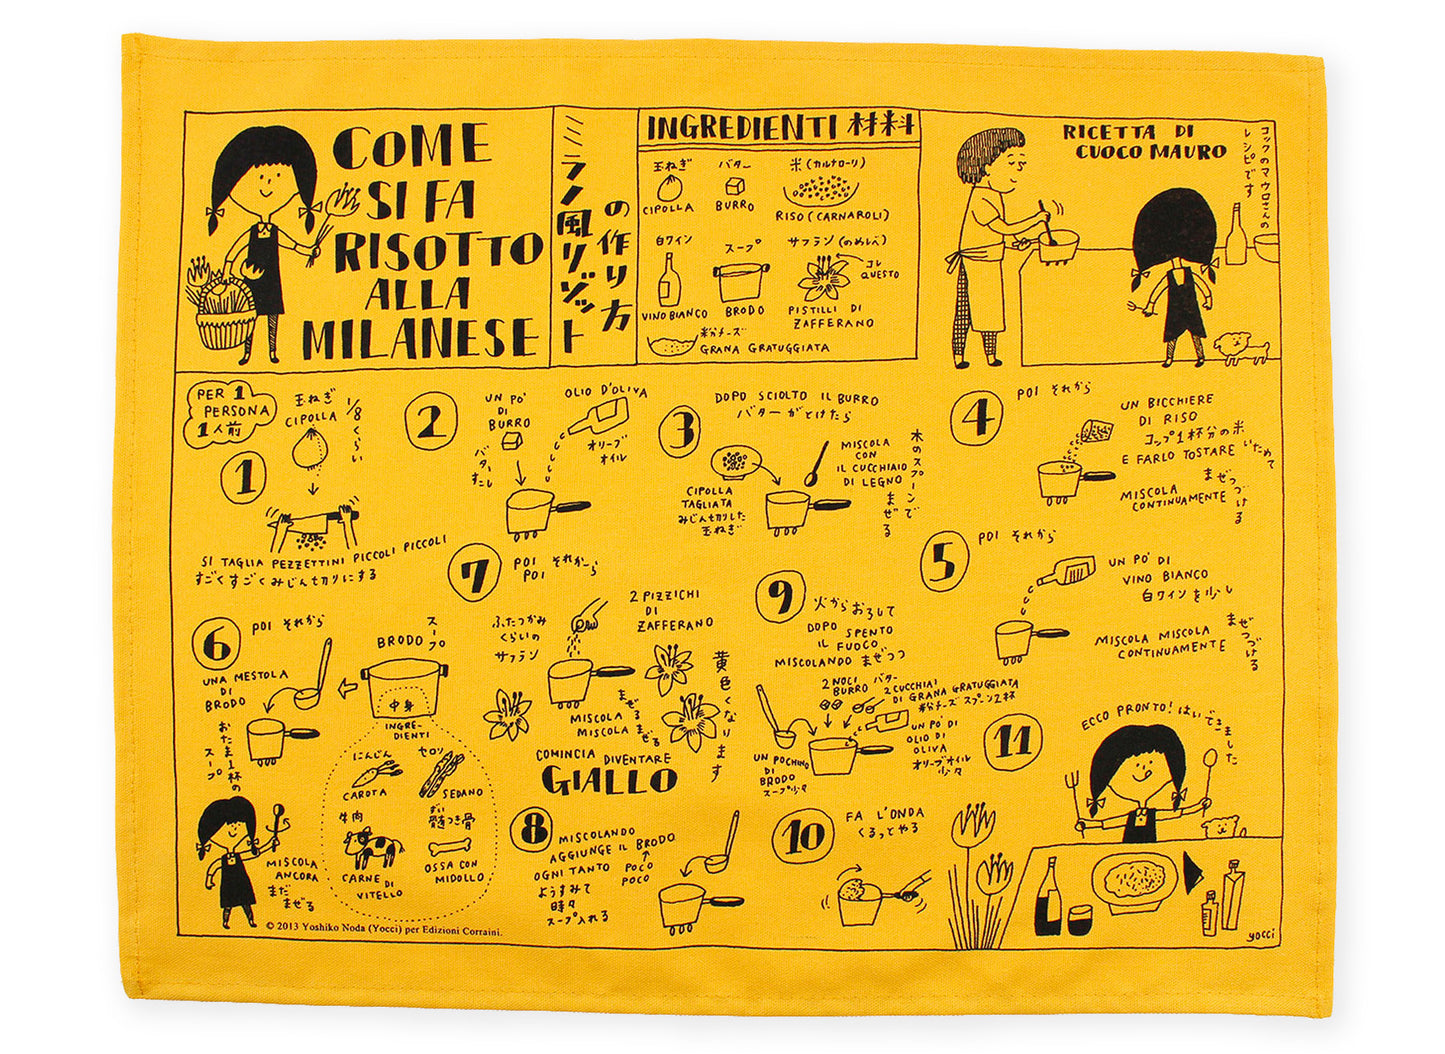 COME
SI FA
RISOTTO
ALLA
MILANESE
ミラノ風リゾット
の作り方
INGREDIENTI 材料
玉ねぎ
CIPOLLA
バター
BURRO
米(カルナローリ)
RISO (CARNAROLI)
白ワイン
VINO BIANCO
スープ
BRODO
サフラン(のめしべ)
コレ
QUESTO
PISTILLI DI
ZAFFERANO
粉チーズ
GRANA GRATUGGIATA
RICETTA DI
CUOCO MAURO
コックのマウロさんの
レシピです
PER 1
PERSONA
1人前
1
玉ねぎ
CIPOLLA
1/8くらい
SI TAGLIA PEZZETTINI PICCOLI PICCOLI
すごくすごくみじん切りにする
2
UN PO'
DI
BURRO
バターすこし
OLIO D'OLIVA
オリーブ
オイル
3
DOPO SCIOLTO IL BURRO
バターがとけたら
CIPOLLA
TAGLIATA
みじん切りした
玉ねぎ
MISCOLA
CON
IL CUCCHIAIO
DI LEGNO
木のスプーンで
まぜる
4
POI それから
UN BICCHIERE
DI RISO
コップ1杯分の米
E FARLO TOSTARE いためて
MISCOLA
CONTINUAMENTE
まぜつづける
5
POI それから
UN PO' DI
VINO BIANCO
白ワインを少し
MISCOLA MISCOLA
CONTINUAMENTE
まぜつづける
6
POI それから
UNA MESTOLA
DI
BRODO
おたま1杯の
スープ
BRODO
スープ
中身
INGRE-
DIENTI
にんじん
CAROTA
セロリ
SEDANO
牛肉
CARNE DI
VITELLO
髄つき骨
ずい
OSSA CON
MIDOLLO
MISCOLA
ANCORA
まだ
まぜる
7
POI それから
POI
ふたつかみ
くらいの
サフラン
2 PIZZICHI
DI
ZAFFERANO
MISCOLA まぜる
MISCOLA まぜる
黄色くなります
COMINCIA DIVENTARE
GIALLO
8
MISCOLANDO
AGGIUNGE IL BRODO
OGNI TANTO POCO
POCO
ようすみて
時々
スープ入れる
9
火からおろして
DOPO SPENTO
IL FUOCO
MISCOLANDO まぜつつ
2 NOCI バター
BURRO
2 CUCCHIAI
DI GRANA GRATUGGIATA
粉チーズ スプーン2杯
UN PO' DI
OLIO DI
OLIVA
オリーブオイル
少々
UN POCHINO
DI
BRODO
スープ少々
10
FA L'ONDA
くるっとやる
11
ECCO PRONTO! はいできました
© 2013 Yoshiko Noda (Yocci) per Edizioni Corraini.
yocci